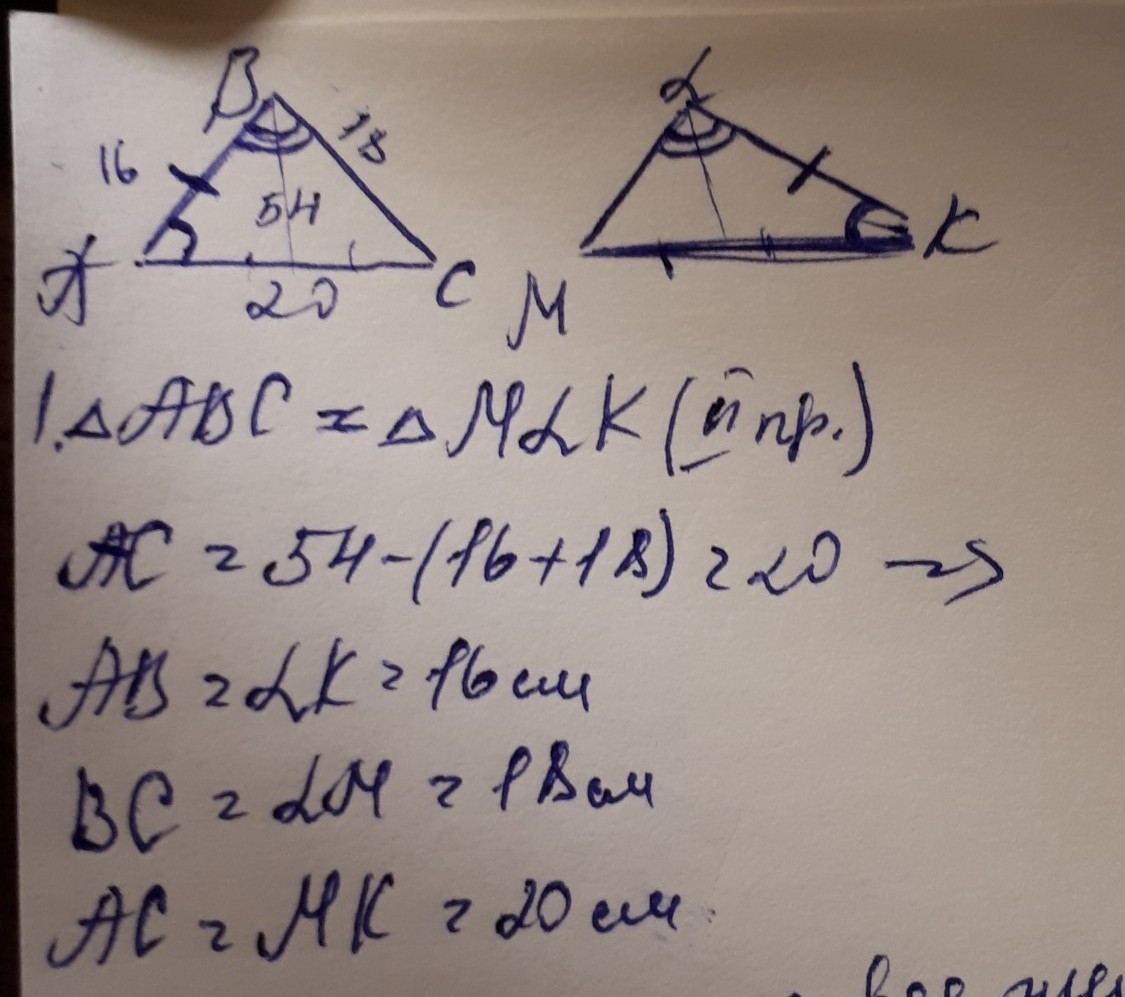 B L
16 18
54
A 20 C M K
1. △ABC = △MLK (II пр.)
AC = 54-(16+18) = 20 =>
AB = LK = 16 см
BC = LM = 18 см
AC = MK = 20 см